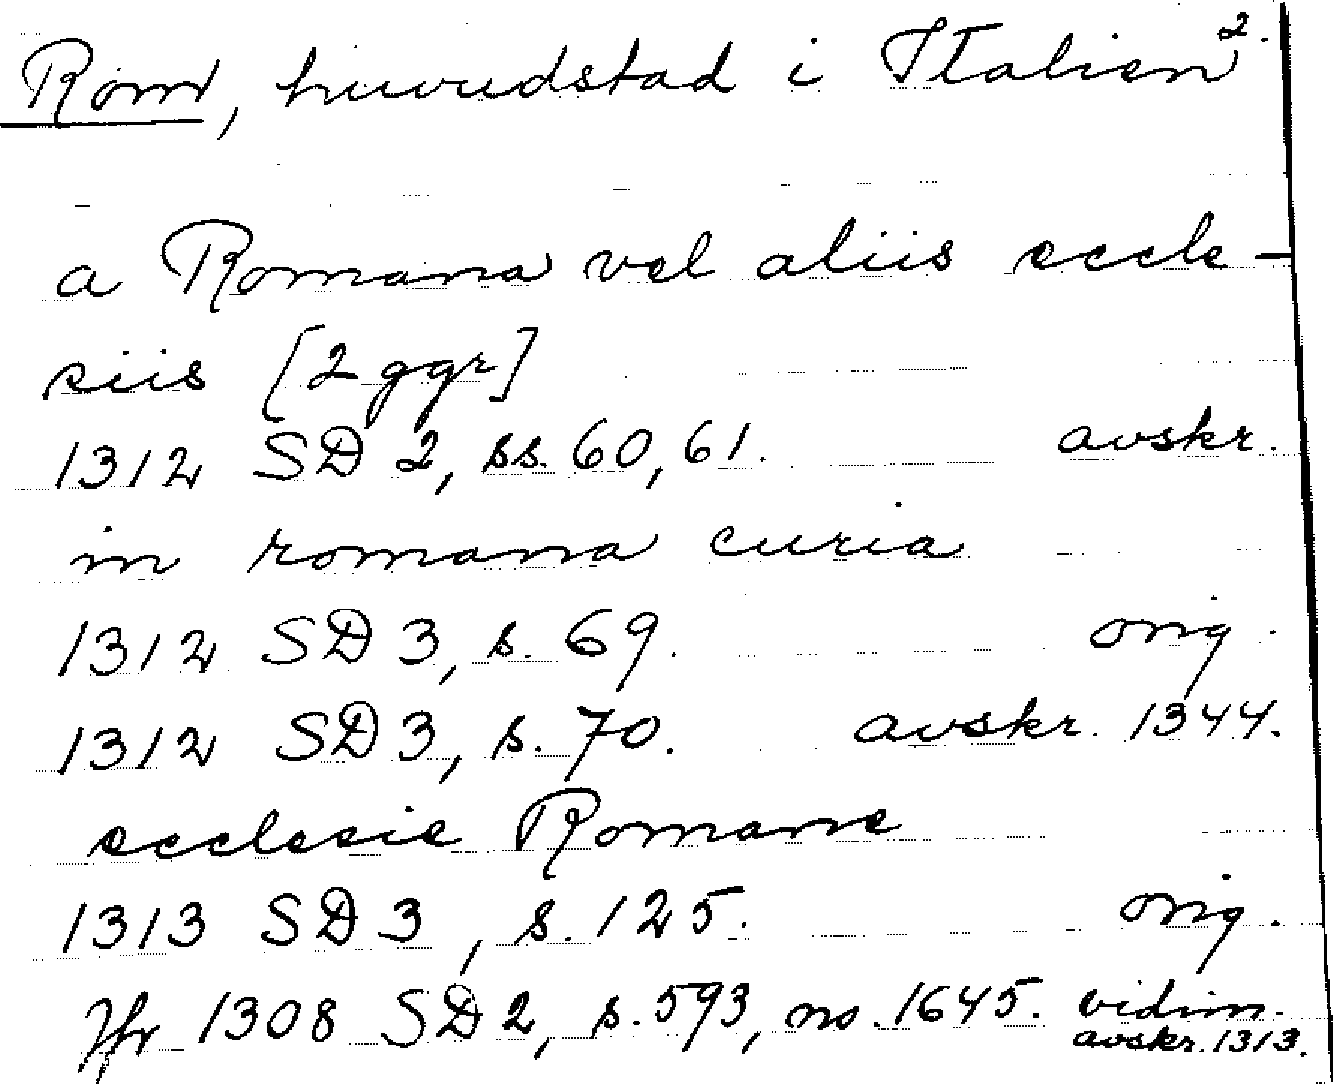 Rom, huvudstad i Italien 2.
a Romana vel aliis eccle-
siis [2 ggr]
1312 SD 2, ss. 60, 61. avskr.
in romana curia
1312 SD 3, s. 69. orig.
1312 SD 3, s. 70. avskr. 1344.
ecclesie Romane
1313 SD 3, s. 125. orig.
Jfr 1308 SD 2, s. 593, no. 1645. vidim.
avskr. 1313.